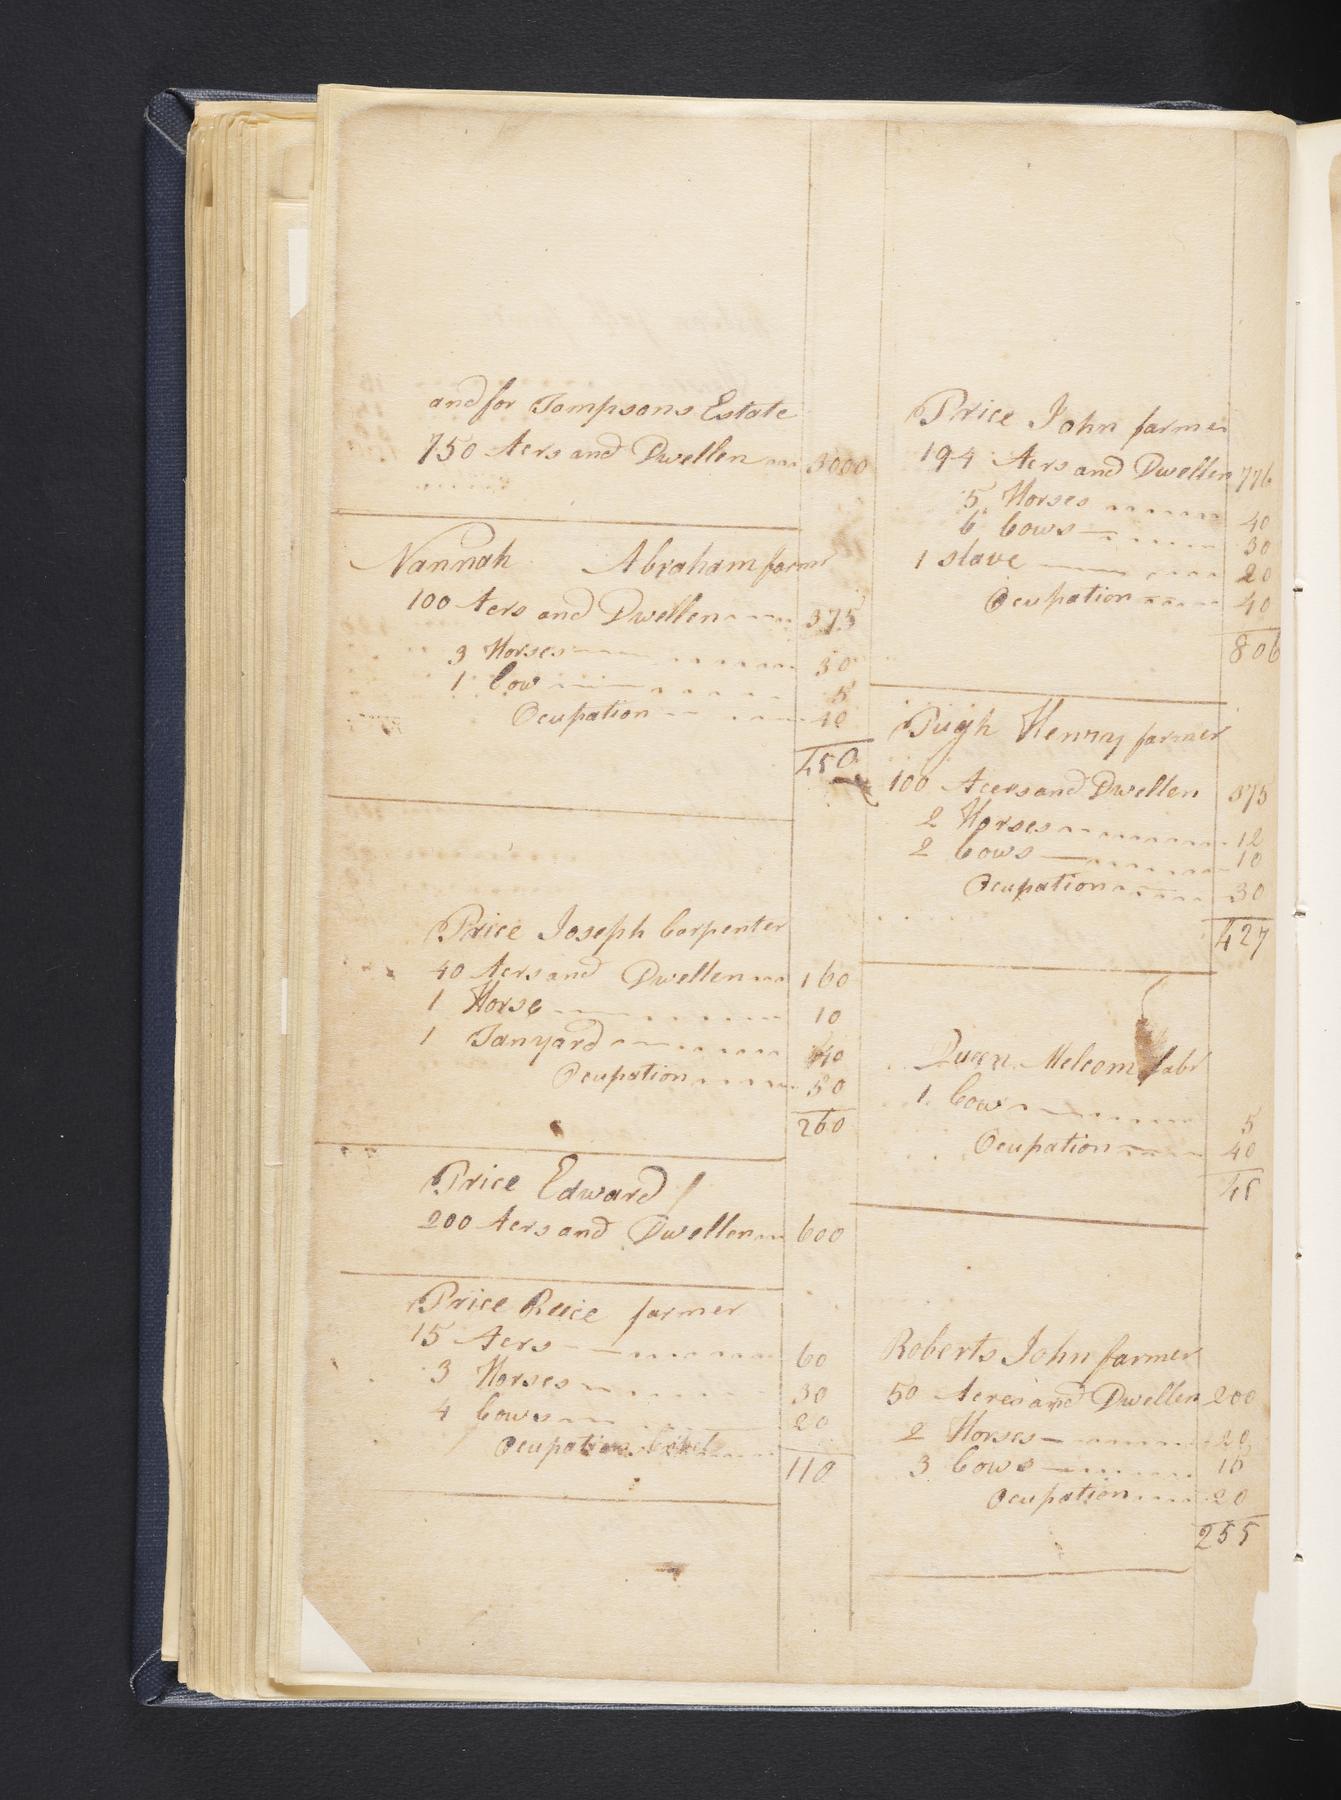 and for Tompsons Estate
750 Acrs and Dwellen 3000
Nannah Abraham farmr
100 Acrs and Dwellen 375
3 Horses 30
1 Cow 5
Ocupation 40
450
Price Joseph Carpenter
40 Acrs and Dwellen 160
1 Horse 10
1 Tanyard 40
Ocupation 50
260
Price Edward
200 Acrs and Dwellen 600
Price Reice farmer
15 Acrs 60
3 Horses 30
4 Cows 20
Ocupation
110
Price John farmer
194 Acrs and Dwellen 776
5 Horses 40
6 Cows 30
1 slave 20
Ocupation 40
806
Pugh Henny farmer
100 Acers and Dwellen 375
2 Horses 12
2 Cows 10
Ocupation 30
427
Queen Melcom labr
1 Cow 5
Ocupation 40
45
Roberts John farmer
50 Acres and Dwellen 200
2 Horses 20
3 Cows 15
Ocupation 20
255